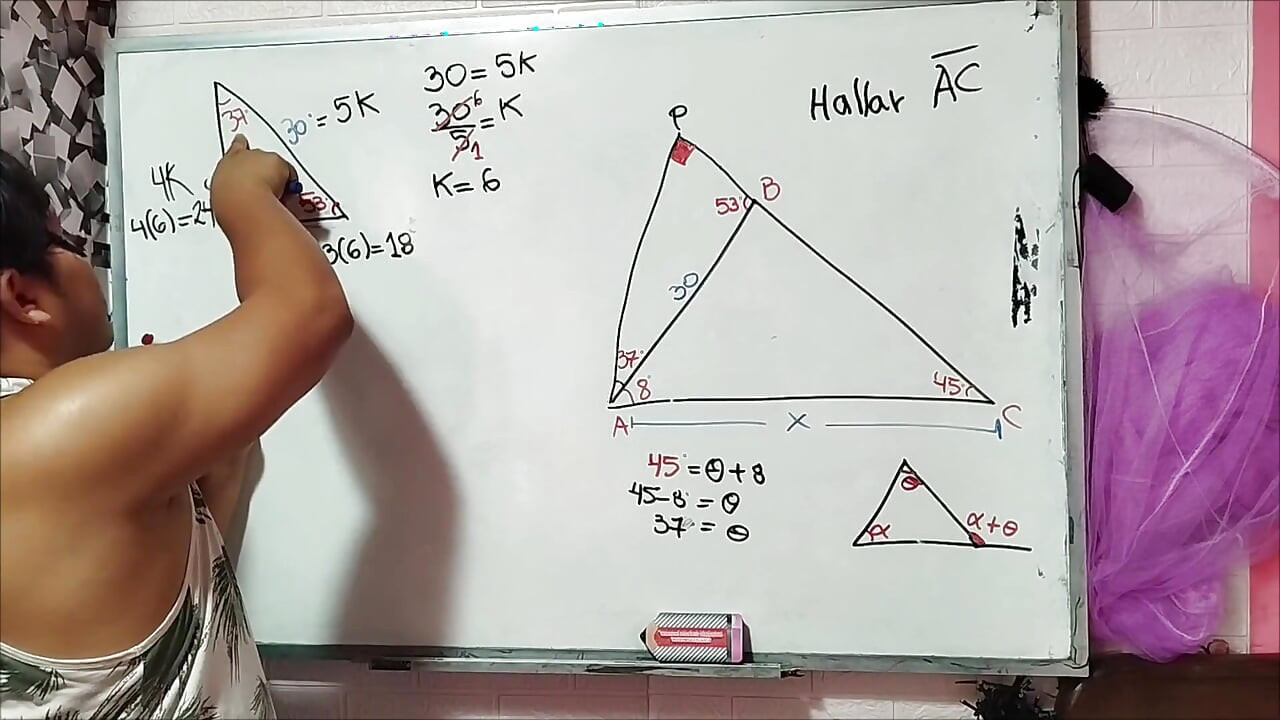 30=5K
30/5=K
6
1
K=6
37°
30°=5K
4K
4(6)=24
53°
3(6)=18
Hallar AC
P
53°
B
30
37°
8°
45°
A
x
C
45°=θ+8
45-8°=θ
37°=θ
θ
α
α+θ